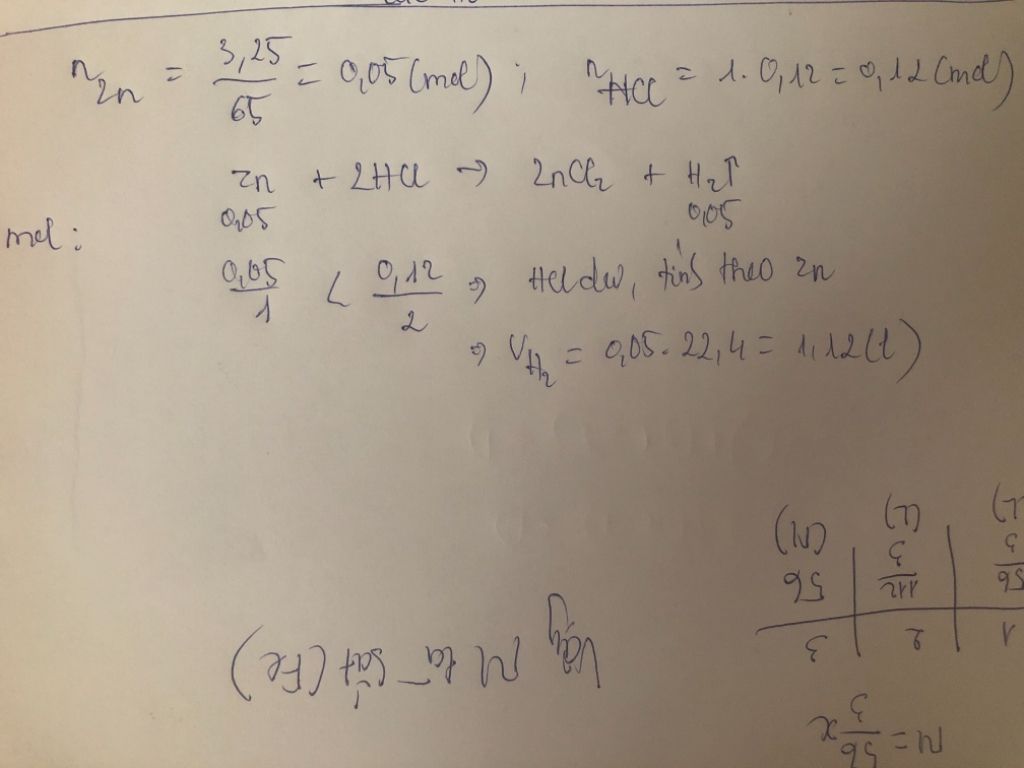 n_Zn = 3,25/65 = 0,05 (mol) ; n_HCl = 1. 0,12 = 0,12 (mol)
Zn + 2HCl → ZnCl₂ + H₂↑
mol : 0,05 0,05
0,05/1 < 0,12/2 ⇒ HCl dư, tính theo Zn
⇒ V_H₂ = 0,05. 22,4 = 1,12 (l)
M = 56/3 x
1 | 2 | 3
56/3 | 112/3 | 56
(L) | (L) | (N)
Vậy M là sắt (Fe)